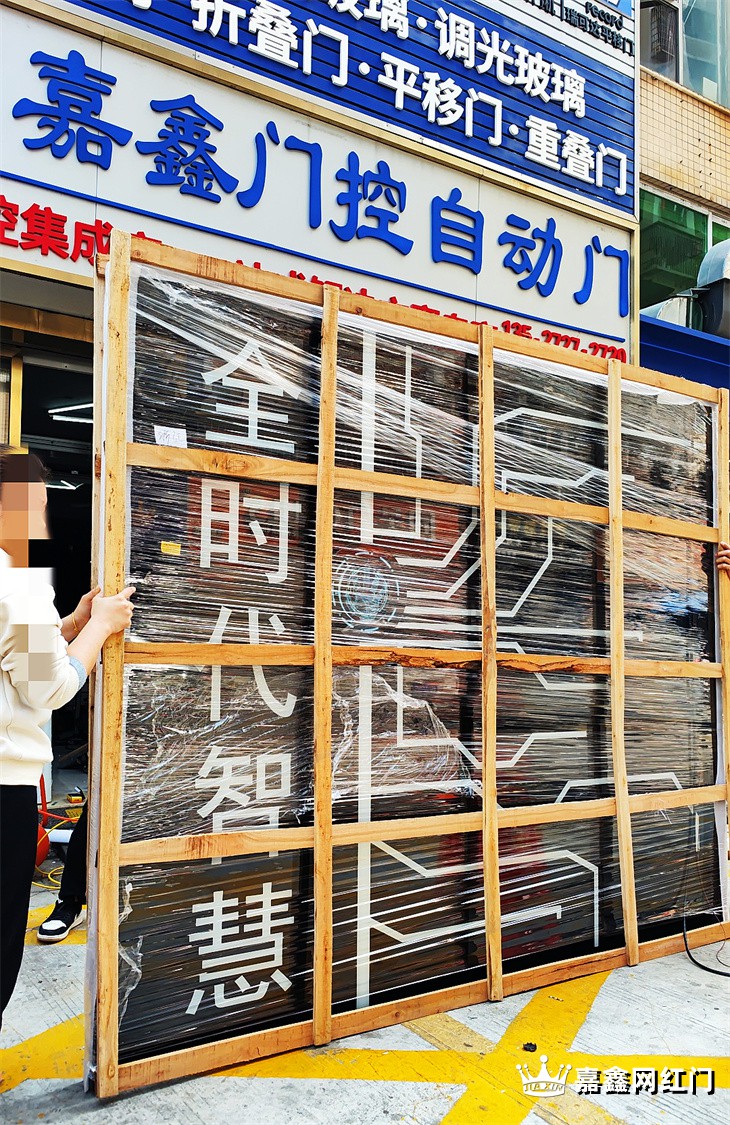 record
玻璃·调光玻璃
折叠门·平移门·重叠门
嘉鑫门控自动门
控集成
135-2727-2720
全时代智慧
JIA XIN
嘉鑫网红门